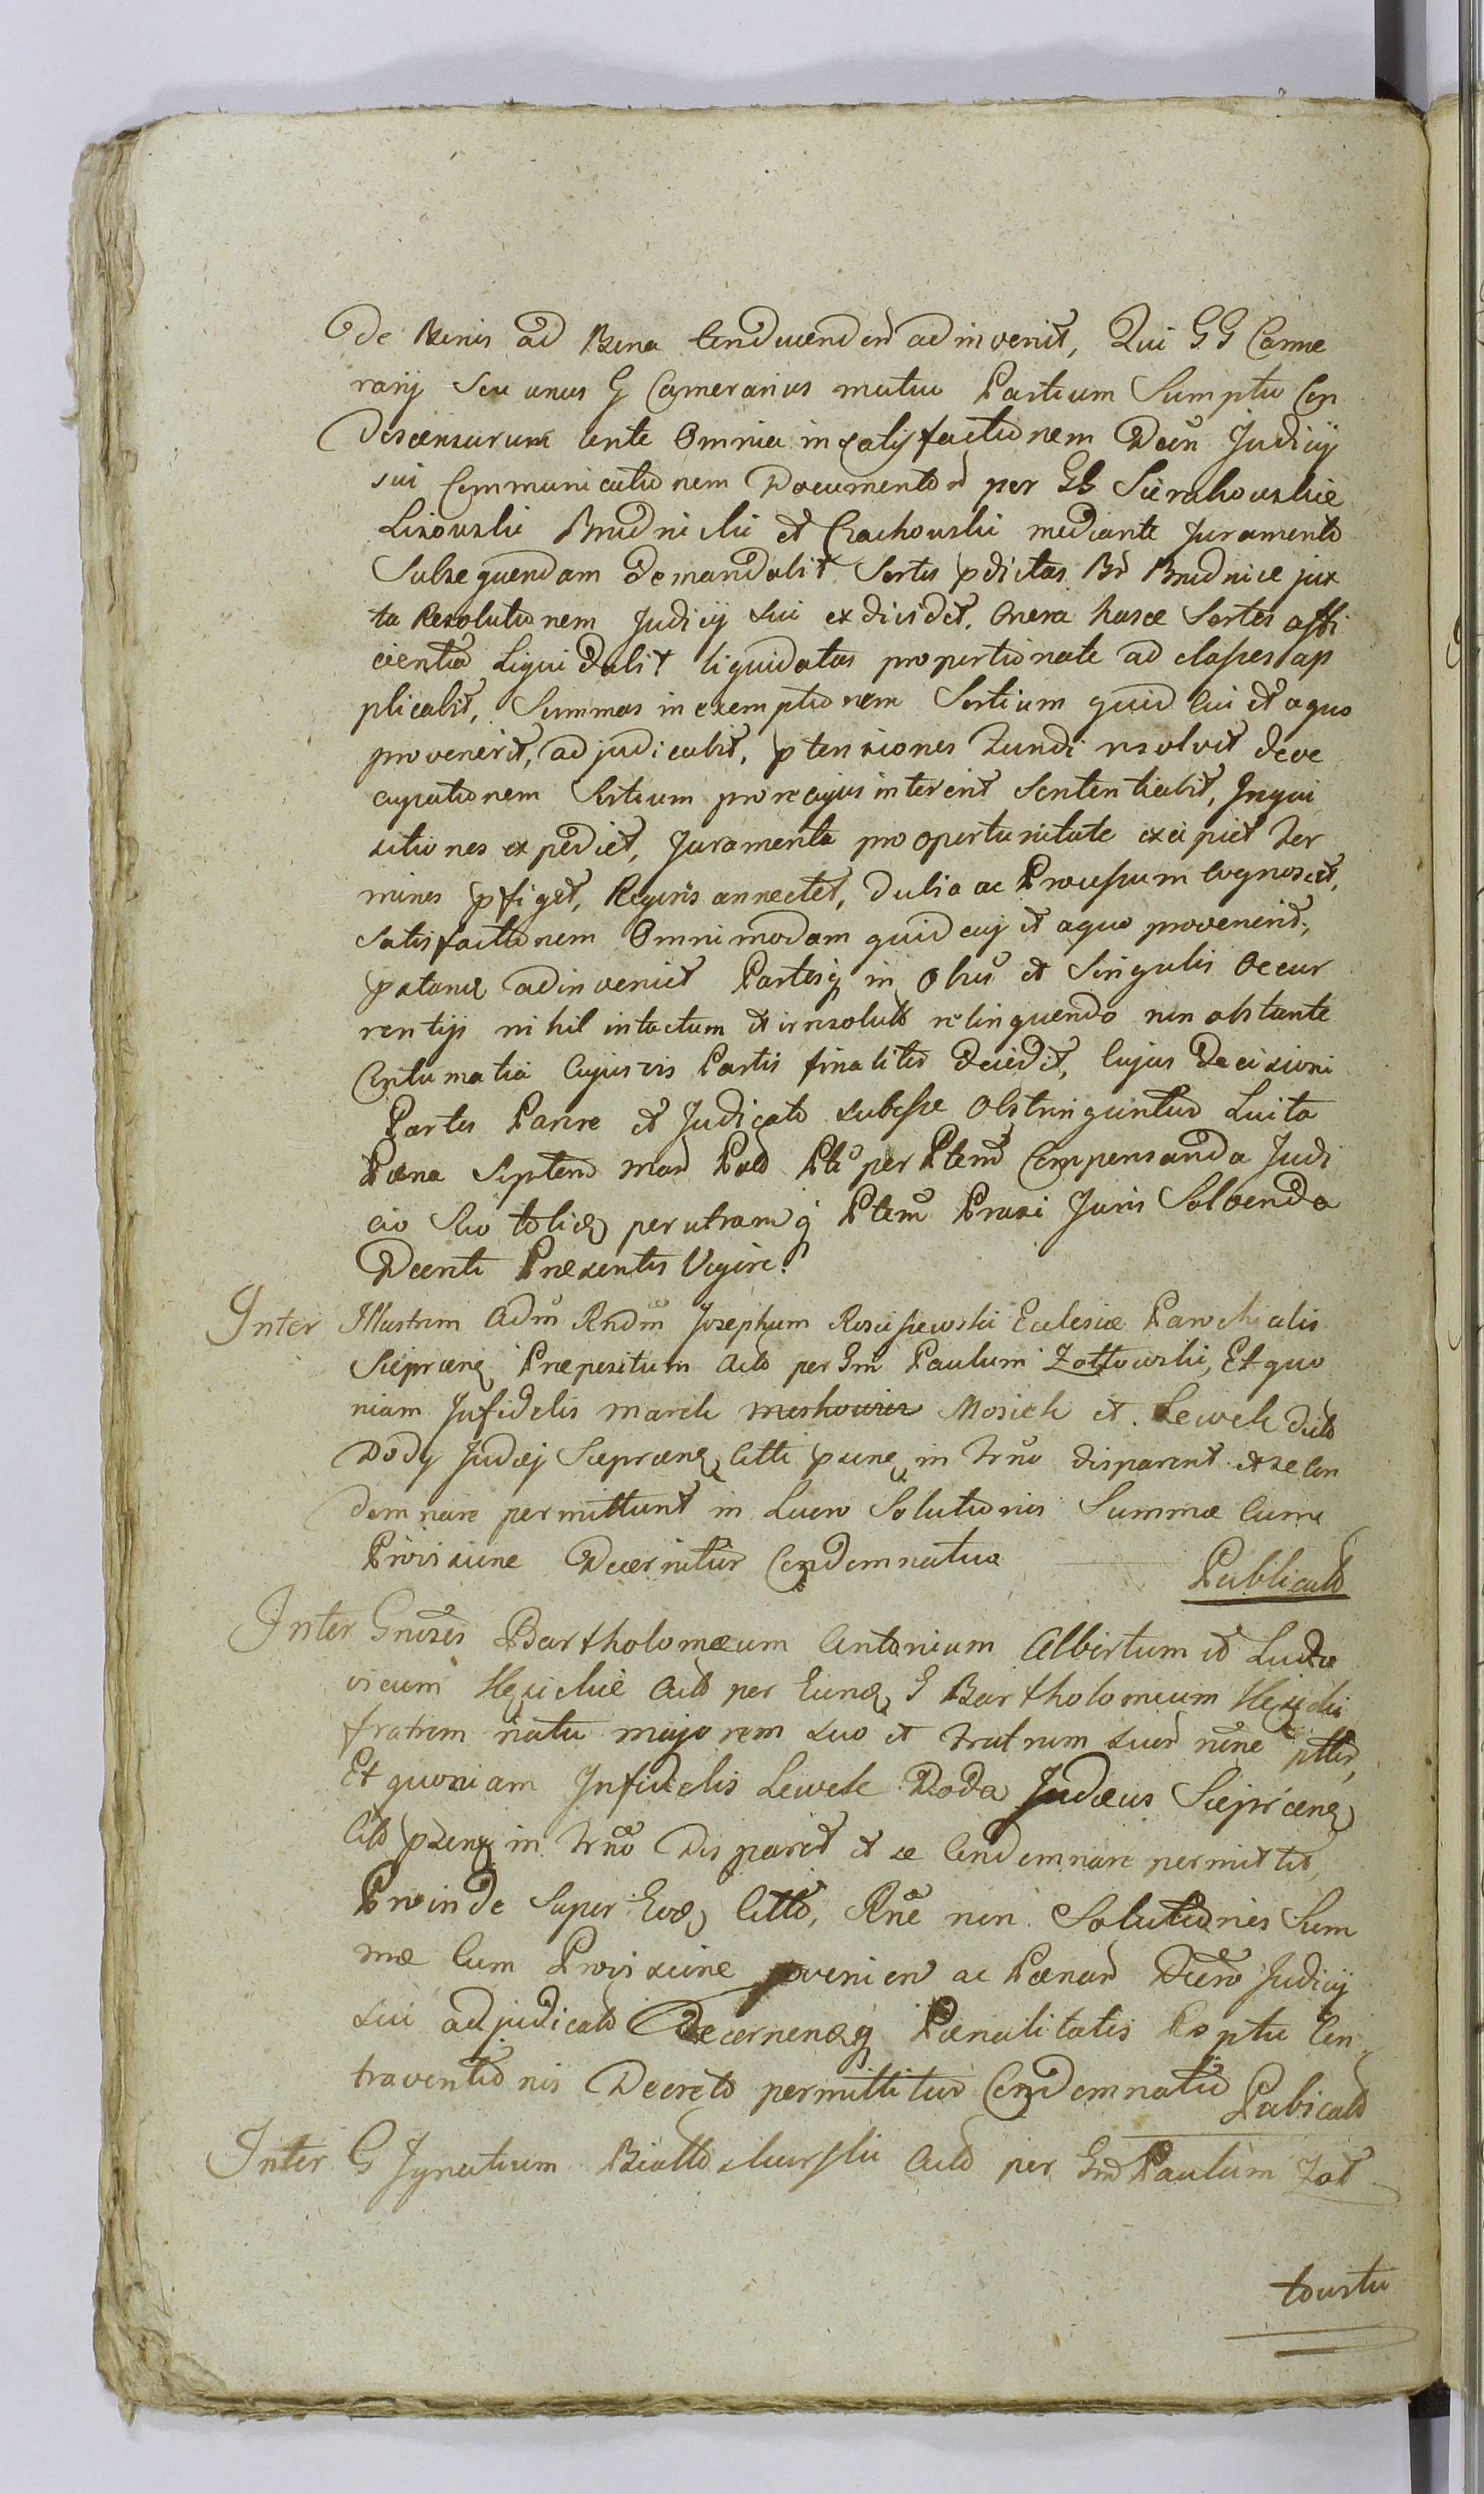 de Bonis ad Bona Conducend adinvenit, Qui GG Came
rarij seu unus G Camerarius mutuo Partium Sumptu Con
descensurum ante Omnia in satisfactionem Decu Judicij
sui Communicationem Documentor per GG Sierakowskie
Lisowski Brudnicki et Czachowski mediante Juramento
Subsequendam demandabit Sortes pdictas Br Brudnice jux
ta Resolutionem Judicij sui exdividet. Onera hasce Sortes affi
cientia Liquidabit liquidatas proportionate ad classes ap
plicabit, Summas in exemptionem Sortium quid cui et aquo
provenerit, adjudicabit, ptensiones Fundi resolvit de ve
cupationem Sortium pro re cujus intererit Sententiabit, Inqui
sitiones expediet, Juramenta pro oportunitate excipiet Ter
minos pfiget, Requiris annectet, dubia ac Processum cognoscet,
Satisfactionem Omnimodam quid cuj et aquo provenerit,
pstand adinveniet Partesq in Obus et Singulis Occur
rentijs nihil intactum et irresolut relinquendo non obstante
Contumatia Cujusvis Partis finaliter decidet, Cujus Decisioni
Partes Parere et Judicato subesse Obstringuntur Luita
Pæna Septem mar Pol Pti per Ptem Compensanda Judi
cio Suo toties per utramq Ptem Praxi Juris Solvenda
Decreti Præsentis Vigore.
Inter Illustrem Adm Rndm Josephum Rosciszewski Eclesiæ Parochialis
Sieprcen Præpositum Act per Gm Paulum Zottowski, Et quo
niam Infidelis March Moskowicz Mosiek et Lewek dict
Doda Judæj Sieprcen Citti psens in Trno disparent et se Con
demnare permittunt in Lucro Solutionis Summæ Cum
Provisione Decernitur Condemnatio Publicat
Inter Gnoses Bartholomæum Antonium Albertum et Ludo
vicum Act per Eund G Bartholomeum
fratrem natu majorem suo et fratrum suor nōne pttes,
Et quoniam Infidelis Lewek Doda Judæus Sieprcens
Citt psens in Trno disparet et se Condemnare permittit,
Proinde Super Eod Citto, Rne non Solutionis Sum
mæ Cum Provisione provenien ac Pænar Decro Judicij
sui adjudicat Decernendq Pænalitatis Rsptu Con
traventionis Decreto permittitur Condemnatio Pubicat
Inter G Ignatium Act per Gm Paulum Zot
towski